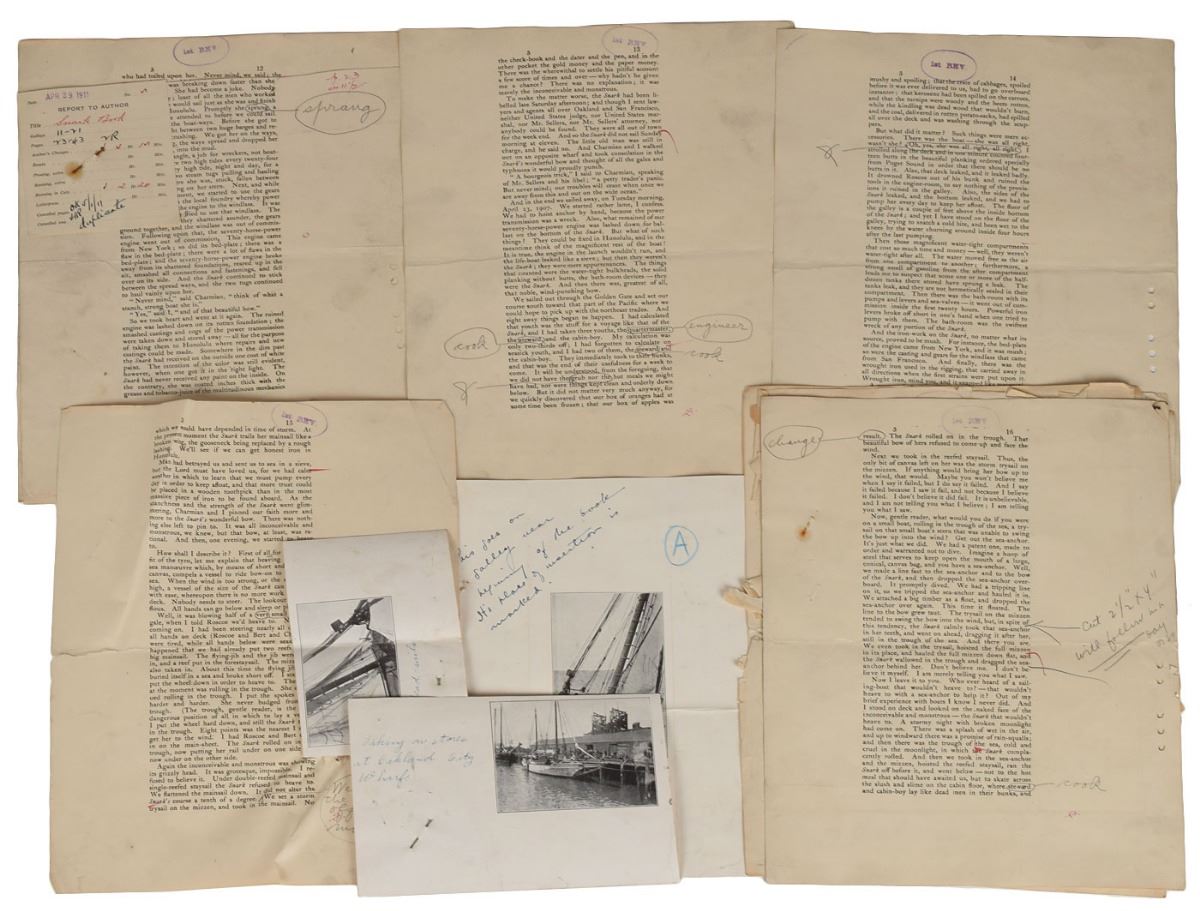 1st REV
3 12
who had toiled upon her. Never mind, we said; the
was breaking down faster than she
She had become a joke. Nobody
; least of all the men who worked
would sail just as she was and finish
Honolulu. Promptly she sprung a
attended to before we could sail.
the boat-ways. Before she got to
between two huge barges and re-
We got her on the ways,
the ways spread and dropped her
into the mud.
angle, a job for wreckers, not boat-
two high tides every twenty-four
high tide, night and day, for a
steam tugs pulling and hauling
she was, stuck, fallen between
on her stern. Next, and while
we started to use the gears
the local foundry whereby power
the engine to the windlass. It was
tried to use that windlass. The
they shattered asunder, the gears
ground together, and the windlass was out of commis-
sion. Following upon that, the seventy-horse-power
engine went out of commission. This engine came
from New York; so did its bed-plate; there was a
flaw in the bed-plate; there were a lot of flaws in the
bed-plate; and the seventy-horse-power engine broke
away from its shattered foundations, reared up in the
air, smashed all connections and fastenings, and fell
over on its side. And the Snark continued to stick
between the spread ways, and the two tugs continued
to haul vainly upon her.
“Never mind,” said Charmian, “think of what a
stanch, strong boat she is.”
“Yes,” said I, “and of that beautiful bow.”
So we took heart and went at it again. The ruined
engine was lashed down on its rotten foundation; the
smashed castings and cogs of the power transmission
were taken down and stored away—all for the purpose
of taking them to Honolulu where repairs and new
castings could be made. Somewhere in the dim past
the Snark had received on the outside one coat of white
paint. The intention of the colour was still evident,
however, when one got it in the right light. The
Snark had never received any paint on the inside. On
the contrary, she was coated inches thick with the
grease and tobacco-juice of the multitudinous mechanics
sprang
APR 29 1911
REPORT TO AUTHOR
Title Snark Book
Galleys 11-21
Pages
Author's Changes
duplicate
1st REV
3 13
the check-book and the dater and the pen, and in the
other pocket the gold money and the paper money.
There was the wherewithal to settle his pitiful amount
a few score of times and over—why hadn't he given
me a chance? There was no explanation; it was
merely the inconceivable and monstrous.
To make the matter worse, the Snark had been li-
belled late Saturday afternoon; and though I sent law-
yers and agents all over Oakland and San Francisco,
neither United States judge, nor United States mar-
shal, nor Mr. Sellers, nor Mr. Sellers' attorney, nor
anybody could be found. They were all out of town
for the week end. And so the Snark did not sail Sunday
morning at eleven. The little old man was still in
charge, and he said no. And Charmian and I walked
out on an opposite wharf and took consolation in the
Snark's wonderful bow and thought of all the gales and
typhoons it would proudly punch.
“A bourgeois trick,” I said to Charmian, speaking
of Mr. Sellers and his libel; “a petty trader's panic.
But never mind; our troubles will cease when once we
are away from this and out on the wide ocean.”
And in the end we sailed away, on Tuesday morning,
April 23, 1907. We started rather lame, I confess.
We had to hoist anchor by hand, because the power
transmission was a wreck. Also, what remained of our
seventy-horse-power engine was lashed down for bal-
last on the bottom of the Snark. But what of such
things? They could be fixed in Honolulu, and in the
meantime think of the magnificent rest of the boat!
It is true, the engine in the launch wouldn't run, and
the life-boat leaked like a sieve; but then they weren't
the Snark; they were mere appurtenances. The things
that counted were the water-tight bulkheads, the solid
planking without butts, the bath-room devices—they
were the Snark. And then there was, greatest of all,
that noble, wind-punching bow.
We sailed out through the Golden Gate and set our
course south toward that part of the Pacific where we
could hope to pick up with the northeast trades. And
right away things began to happen. I had calculated
that youth was the stuff for a voyage like that of the
Snark, and I had taken three youths, the quartermaster,
the steward, and the cabin-boy. My calculation was
only two-thirds off; I had forgotten to calculate on
seasick youth, and I had two of them, the steward and
the cabin-boy. They immediately took to their bunks,
and that was the end of their usefulness for a week to
come. It will be understood, from the foregoing, that
we did not have the grub nor the hot meals we might
have had, nor were things kept clean and orderly down
below. But it did not matter very much anyway, for
we quickly discovered that our box of oranges had at
some time been frozen; that our box of apples was
cook
engineer
cook
1st REV
3 14
mushy and spoiling; that the crate of cabbages, spoiled
before it was ever delivered to us, had to go overboard
instanter; that kerosene had been spilled on the carrots,
and that the turnips were woody and the beets rotten,
while the kindling was dead wood that wouldn't burn,
and the coal, delivered in rotten potato-sacks, had spilled
all over the deck and was washing through the scup-
pers.
But what did it matter? Such things were mere ac-
cessories. There was the boat—she was all right,
wasn't she? Oh, yes, she was all right, all right! I
strolled along the deck and in one minute counted four-
teen butts in the beautiful planking ordered specially
from Puget Sound in order that there should be no
butts in it. Also, that deck leaked, and it leaked badly.
It drowned Roscoe out of his bunk and ruined the
tools in the engine-room, to say nothing of the provis-
ions it ruined in the galley. Also, the sides of the
Snark leaked, and the bottom leaked, and we had to
pump her every day to keep her afloat. The floor of
the galley is a couple of feet above the inside bottom
of the Snark; and yet I have stood on the floor of the
galley, trying to snatch a cold bite, and been wet to the
knees by the water churning around inside four hours
after the last pumping.
Then those magnificent water-tight compartments
that cost so much time and money—well, they weren't
water-tight after all. The water moved free as the air
from one compartment to another; furthermore, a
strong smell of gasolene from the after compartment
leads me to suspect that some one or more of the half-
dozen tanks there stored have sprung a leak. The
tanks leak, and they are not hermetically sealed in their
compartment. Then there was the bath-room with its
pumps and levers and sea-valves—it went out of com-
mission inside the first twenty hours. Powerful iron
levers broke off short in one's hand when one tried to
pump with them. The bath-room was the swiftest
wreck of any portion of the Snark.
And the iron-work on the Snark, no matter what its
source, proved to be mush. For instance, the bed-plate
of the engine came from New York, and it was mush;
so were the casting and gears for the windlass that came
from San Francisco. And finally, there was the
wrought iron used in the rigging, that carried away in
all directions when the first strains were put upon it.
Wrought iron, mind you, and it snapped like macaroni
1st REV
15
which we could have depended in time of storm. At
the present moment the Snark trails her mainsail like a
broken wing, the gooseneck being replaced by a rough
lashing. We'll see if we can get honest iron in
Honolulu.
Man had betrayed us and sent us to sea in a sieve,
but the Lord must have loved us, for we had calm
weather in which to learn that we must pump every
day in order to keep afloat, and that more trust could
be placed in a wooden toothpick than in the most
massive piece of iron to be found aboard. As the
stanchness and the strength of the Snark went glim-
mering, Charmian and I pinned our faith more and
more to the Snark's wonderful bow. There was noth-
ing else left to pin to. It was all inconceivable and
monstrous, we knew, but that bow, at least, was ra-
tional. And then, one evening, we started to heave
to.
How shall I describe it? First of all for
of the tyro, let me explain that heaving
sea manœuvre which, by means of short and
canvas, compels a vessel to ride bow-on to
sea. When the wind is too strong, or the
high, a vessel of the size of the Snark can
with ease, whereupon there is no more work
deck. Nobody needs to steer. The lookout
flous. All hands can go below and sleep or
Well, it was blowing half of a very small
gale, when I told Roscoe we'd heave to.
coming on. I had been steering nearly all
all hands on deck (Roscoe and Bert and Ch
were tired, while all hands below were seas
happened that we had already put two reefs
big mainsail. The flying-jib and the jib were
in, and a reef put in the forestaysail. The mizzen
also taken in. About this time the flying
buried itself in a sea and broke short off. I
put the wheel down in order to heave to. The
at the moment was rolling in the trough. She
ued rolling in the trough. I put the spokes
harder and harder. She never budged from
trough. (The trough, gentle reader, is the
dangerous position of all in which to lay a
I put the wheel hard down, and still the Snark
in the trough. Eight points was the nearest I
get her to the wind. I had Roscoe and Bert
in on the main-sheet. The Snark rolled on in
trough, now putting her rail under on one side
now under on the other side.
Again the inconceivable and monstrous was showing
its grizzly head. It was grotesque, impossible. I re-
fused to believe it. Under double-reefed mainsail and
single-reefed staysail the Snark refused to heave to.
We flattened the mainsail down. It did not alter the
Snark's course a tenth of a degree. We set a storm
trysail on the mizzen, and took in the mainsail. No
goes on
galley near
beginning of the book
It's place of insertion is
marked.
A
Taking on stores
at Oakland City
Wharf.
1st REV
3 16
result. The Snark rolled on in the trough. That
beautiful bow of hers refused to come up and face the
wind.
Next we took in the reefed staysail. Thus, the
only bit of canvas left on her was the storm trysail on
the mizzen. If anything would bring her bow up to
the wind, that would. Maybe you won't believe me
when I say it failed, but I do say it failed. And I say
it failed because I saw it fail, and not because I believe
it failed. I don't believe it did fail. It is unbelievable,
and I am not telling you what I believe; I am telling
you what I saw.
Now, gentle reader, what would you do if you were
on a small boat, rolling in the trough of the sea, a try-
sail on that small boat's stern that was unable to swing
the bow up into the wind? Get out the sea-anchor.
It's just what we did. We had a patent one, made to
order and warranted not to dive. Imagine a hoop of
steel that serves to keep open the mouth of a large,
conical, canvas bag, and you have a sea-anchor. Well,
we made a line fast to the sea-anchor and to the bow
of the Snark, and then dropped the sea-anchor over-
board. It promptly dived. We had a tripping line
on it, so we tripped the sea-anchor and hauled it in.
We attached a big timber as a float, and dropped the
sea-anchor over again. This time it floated. The
line to the bow grew taut. The trysail on the mizzen
tended to swing the bow into the wind, but, in spite of
this tendency, the Snark calmly took that sea-anchor
in her teeth, and went on ahead, dragging it after her,
still in the trough of the sea. And there you are.
We even took in the trysail, hoisted the full mizzen
in its place, and hauled the full mizzen down flat, and
the Snark wallowed in the trough and dragged the sea-
anchor behind her. Don't believe me. I don't be-
lieve it myself. I am merely telling you what I saw.
Now I leave it to you. Who ever heard of a sail-
ing-boat that wouldn't heave to?—that wouldn't
heave to with a sea-anchor to help it? Out of my
brief experience with boats I know I never did. And
I stood on deck and looked on the naked face of the
inconceivable and monstrous—the Snark that wouldn't
heave to. A stormy night with broken moonlight
had come on. There was a splash of wet in the air,
and up to windward there was a promise of rain-squalls;
and then there was the trough of the sea, cold and
cruel in the moonlight, in which the Snark compla-
cently rolled. And then we took in the sea-anchor
and the mizzen, hoisted the reefed staysail, ran the
Snark off before it, and went below—not to the hot
meal that should have awaited us, but to skate across
the slush and slime on the cabin floor, where steward
and cabin-boy lay like dead men in their bunks, and
change
Cut 2½" x 4"
will follow
cook